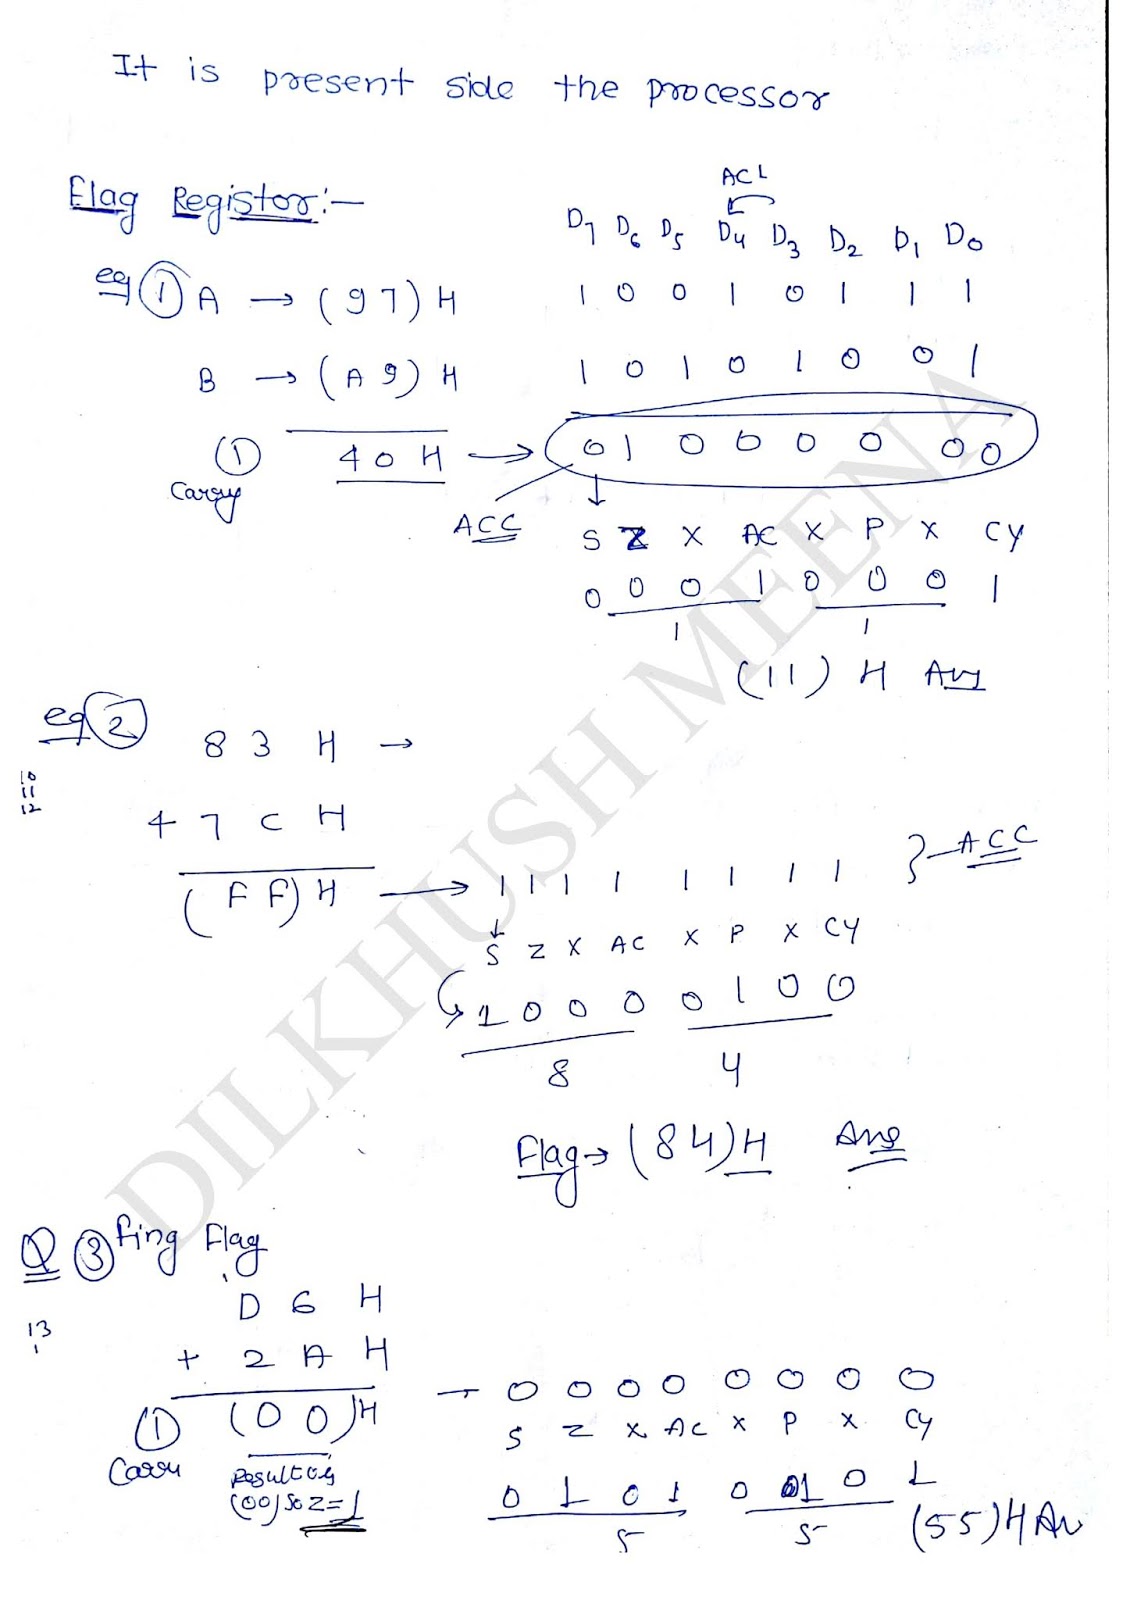 It is present side the processor
AC1
Flag Registor:—
D7 D6 D5 D4 D3 D2 D1 D0
eg ① A → (97) H 1 0 0 1 0 1 1 1
B → (A9) H 1 0 1 0 1 0 0 1
① 40H → 0 1 0 0 0 0 0 0
Carry
ACC
S Z X AC X P X CY
0 0 0 1 0 0 0 1
1 1
(11) H Ans
eg ② 83 H →
10
11
12
+ 7 C H
(FF) H → 1 1 1 1 1 1 1 1 } ACC
S Z X AC X P X CY
1 0 0 0 0 1 0 0
8 4
Flag → (84)H Ans
Q ③ fing Flag
D 6 H
13
+ 2 A H
① (00)H → 0 0 0 0 0 0 0 0
Carry
S Z X AC X P X CY
Result
(00) so Z=1
0 1 0 1 0 1 0 1
5 5
(55)H An
DILKHUSH MEENA